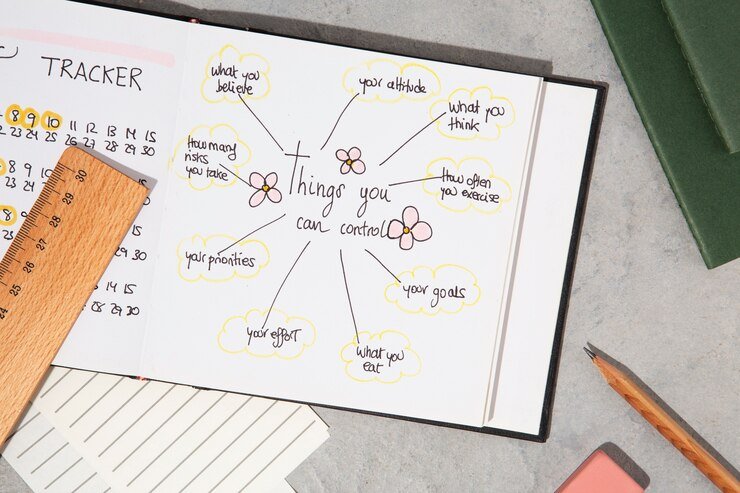 TRACKER
8 9 10 11 12 13 14 15
23 24 25 26 27 28 29 30
8 9
23 24
8
29 30
14 15
28 29 30
30
29
28
27
26
25
24
Things you
can control
what you
believe
your attitude
what you
think
How often
you exercise
your goals
what you
eat
your effort
your priorities
How many
risks
you take